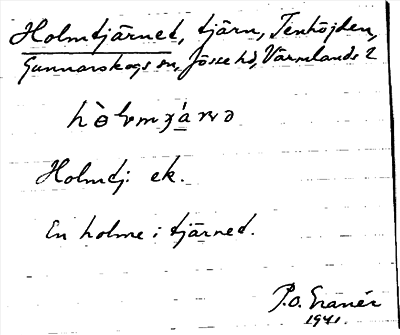 Holmtjärnet, tjärn, Tenhöjden,
Gunnarskogs sn, Jösse hd, Värmlands l.
Holmtj: ek.
En holme i tjärned.
P.O. Granér
1941.